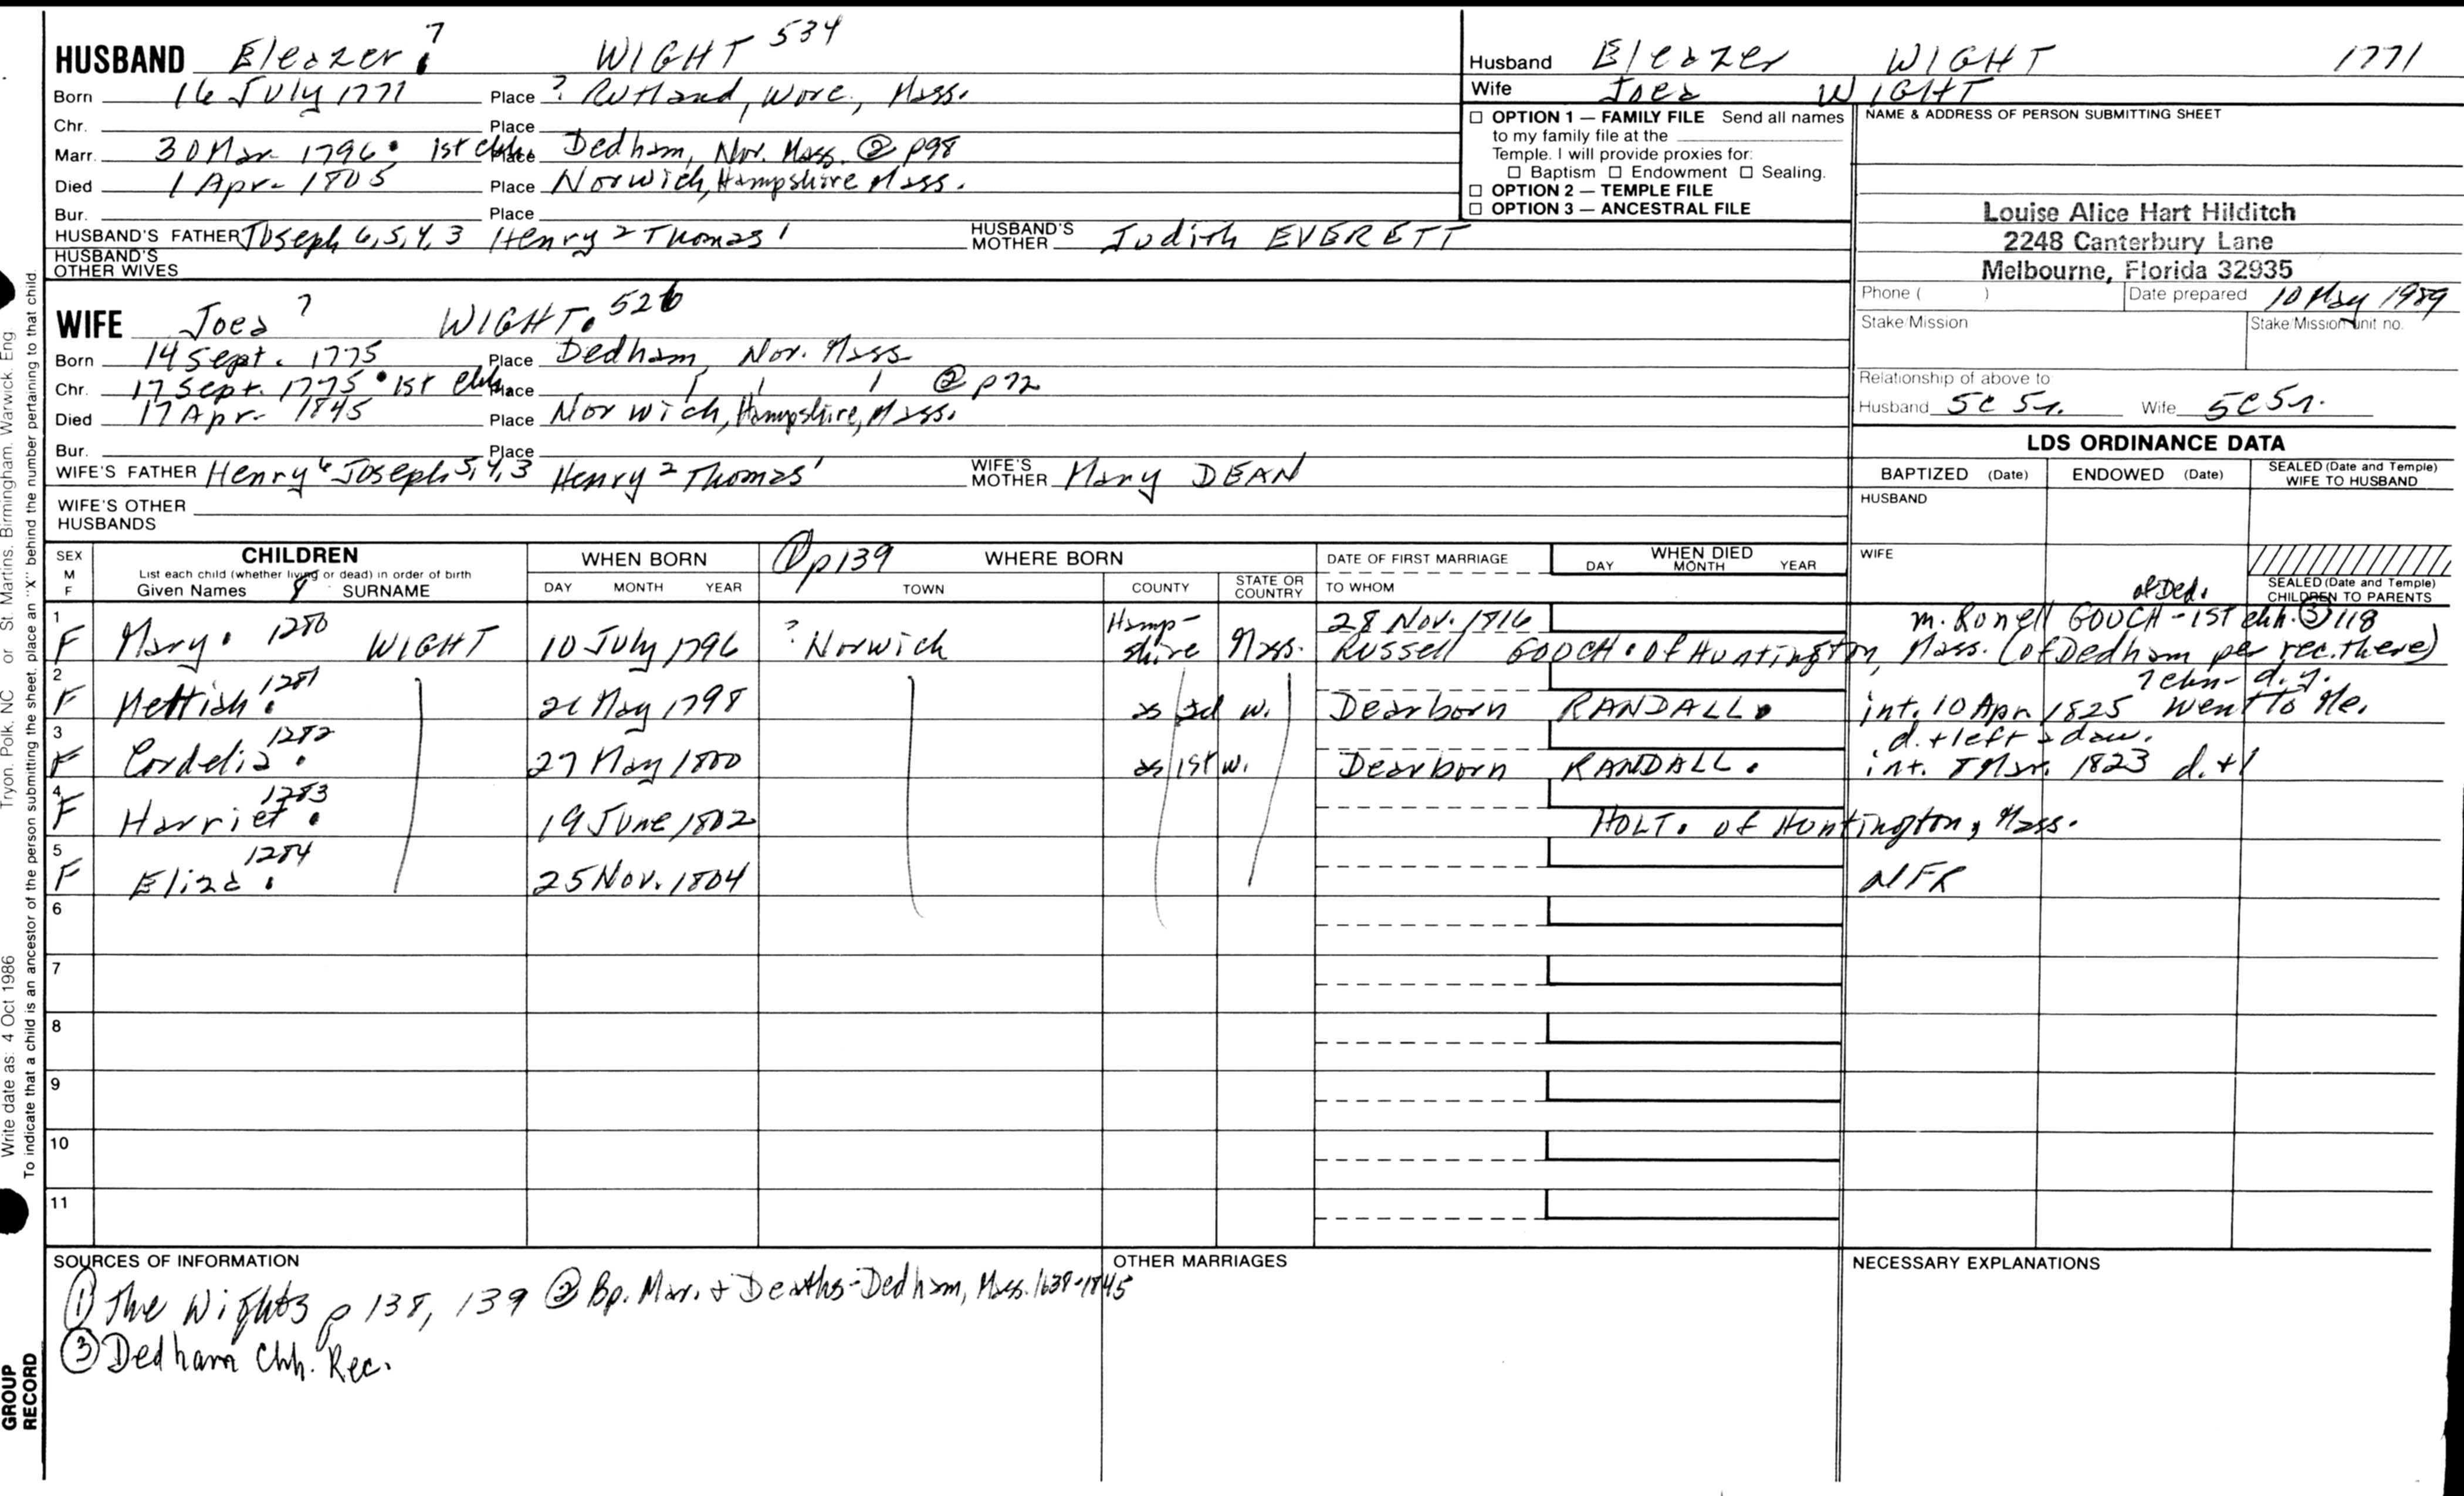 HUSBAND Eleazer 7 WIGHT 534
Born 16 July 1771 Place ? Rutland, Worc., Mass.
Chr. Place
Marr. 30 Mar 1796 1st chh. Place Dedham, Nor. Mass. ② p98
Died 1 Apr. 1805 Place Norwich, Hampshire Mass.
Bur. Place
HUSBAND'S FATHER Joseph 6, 5, 4, 3 Henry 2 Thomas 1 HUSBAND'S MOTHER Judith EVERETT
HUSBAND'S OTHER WIVES
Husband Eleazer WIGHT 1771
Wife Joea WIGHT
☐ OPTION 1 — FAMILY FILE Send all names
to my family file at the
Temple. I will provide proxies for:
☐ Baptism ☐ Endowment ☐ Sealing.
☐ OPTION 2 — TEMPLE FILE
☐ OPTION 3 — ANCESTRAL FILE
NAME & ADDRESS OF PERSON SUBMITTING SHEET
Louise Alice Hart Hilditch
2248 Canterbury Lane
Melbourne, Florida 32935
Phone ( ) Date prepared 10 May 1989
Stake/Mission Stake/Mission unit no.
Relationship of above to
Husband 5C 5r. Wife 5C5r.
WIFE Joea 7 WIGHT. 526
Born 14 Sept. 1775 Place Dedham, Nor. Mass
Chr. 17 Sept. 1775 1st Chh. Place ② p72
Died 17 Apr. 1845 Place Norwich, Hampshire, Mass.
Bur. Place
WIFE'S FATHER Henry 6 Joseph 5, 4, 3 Henry 2 Thomas 1 WIFE'S MOTHER Mary DEAN
WIFE'S OTHER HUSBANDS
LDS ORDINANCE DATA
BAPTIZED (Date) ENDOWED (Date) SEALED (Date and Temple) WIFE TO HUSBAND
HUSBAND
WIFE
SEALED (Date and Temple) CHILDREN TO PARENTS
SEX M F CHILDREN WHEN BORN ① p139 WHERE BORN DATE OF FIRST MARRIAGE WHEN DIED
List each child (whether living or dead) in order of birth
Given Names 8 SURNAME DAY MONTH YEAR TOWN COUNTY STATE OR COUNTRY TO WHOM DAY MONTH YEAR
of Ded.
1 F Mary. 1280 WIGHT 10 July 1796 ? Norwich Hamp-shire Mass. 28 Nov. 1816 m. Ronell GOOCH - 1st chh. ③ 118
Russell GOOCH. Of Huntington, Mass. (of Dedham per rec. there)
2 F Mettiah. 1281 21 May 1798 as 2d w. Dearborn RANDALL. int. 10 Apr. 1825 went to Me.
3 F Cordelia. 1282 27 May 1800 as 1st w. Dearborn RANDALL. d. + left a dau.
int. 8 Mar. 1823 d. + l
4 F Harriet. 1283 19 June 1802 HOLT. of Huntington, Mass.
5 F Eliza. 1284 25 Nov. 1804 NFR
6
7
8
9
10
11
SOURCES OF INFORMATION
① The Wights p 138, 139 ② Bp. Mar. + Deaths - Dedham, Mass. 1638-1845
③ Dedham Chh. Rec.
OTHER MARRIAGES
NECESSARY EXPLANATIONS
Write date as: 4 Oct 1986 Tryon, Polk, NC or St. Martins, Birmingham, Warwick, Eng
To indicate that a child is an ancestor of the person submitting the sheet, place an "X" behind the number pertaining to that child.
GROUP
RECORD